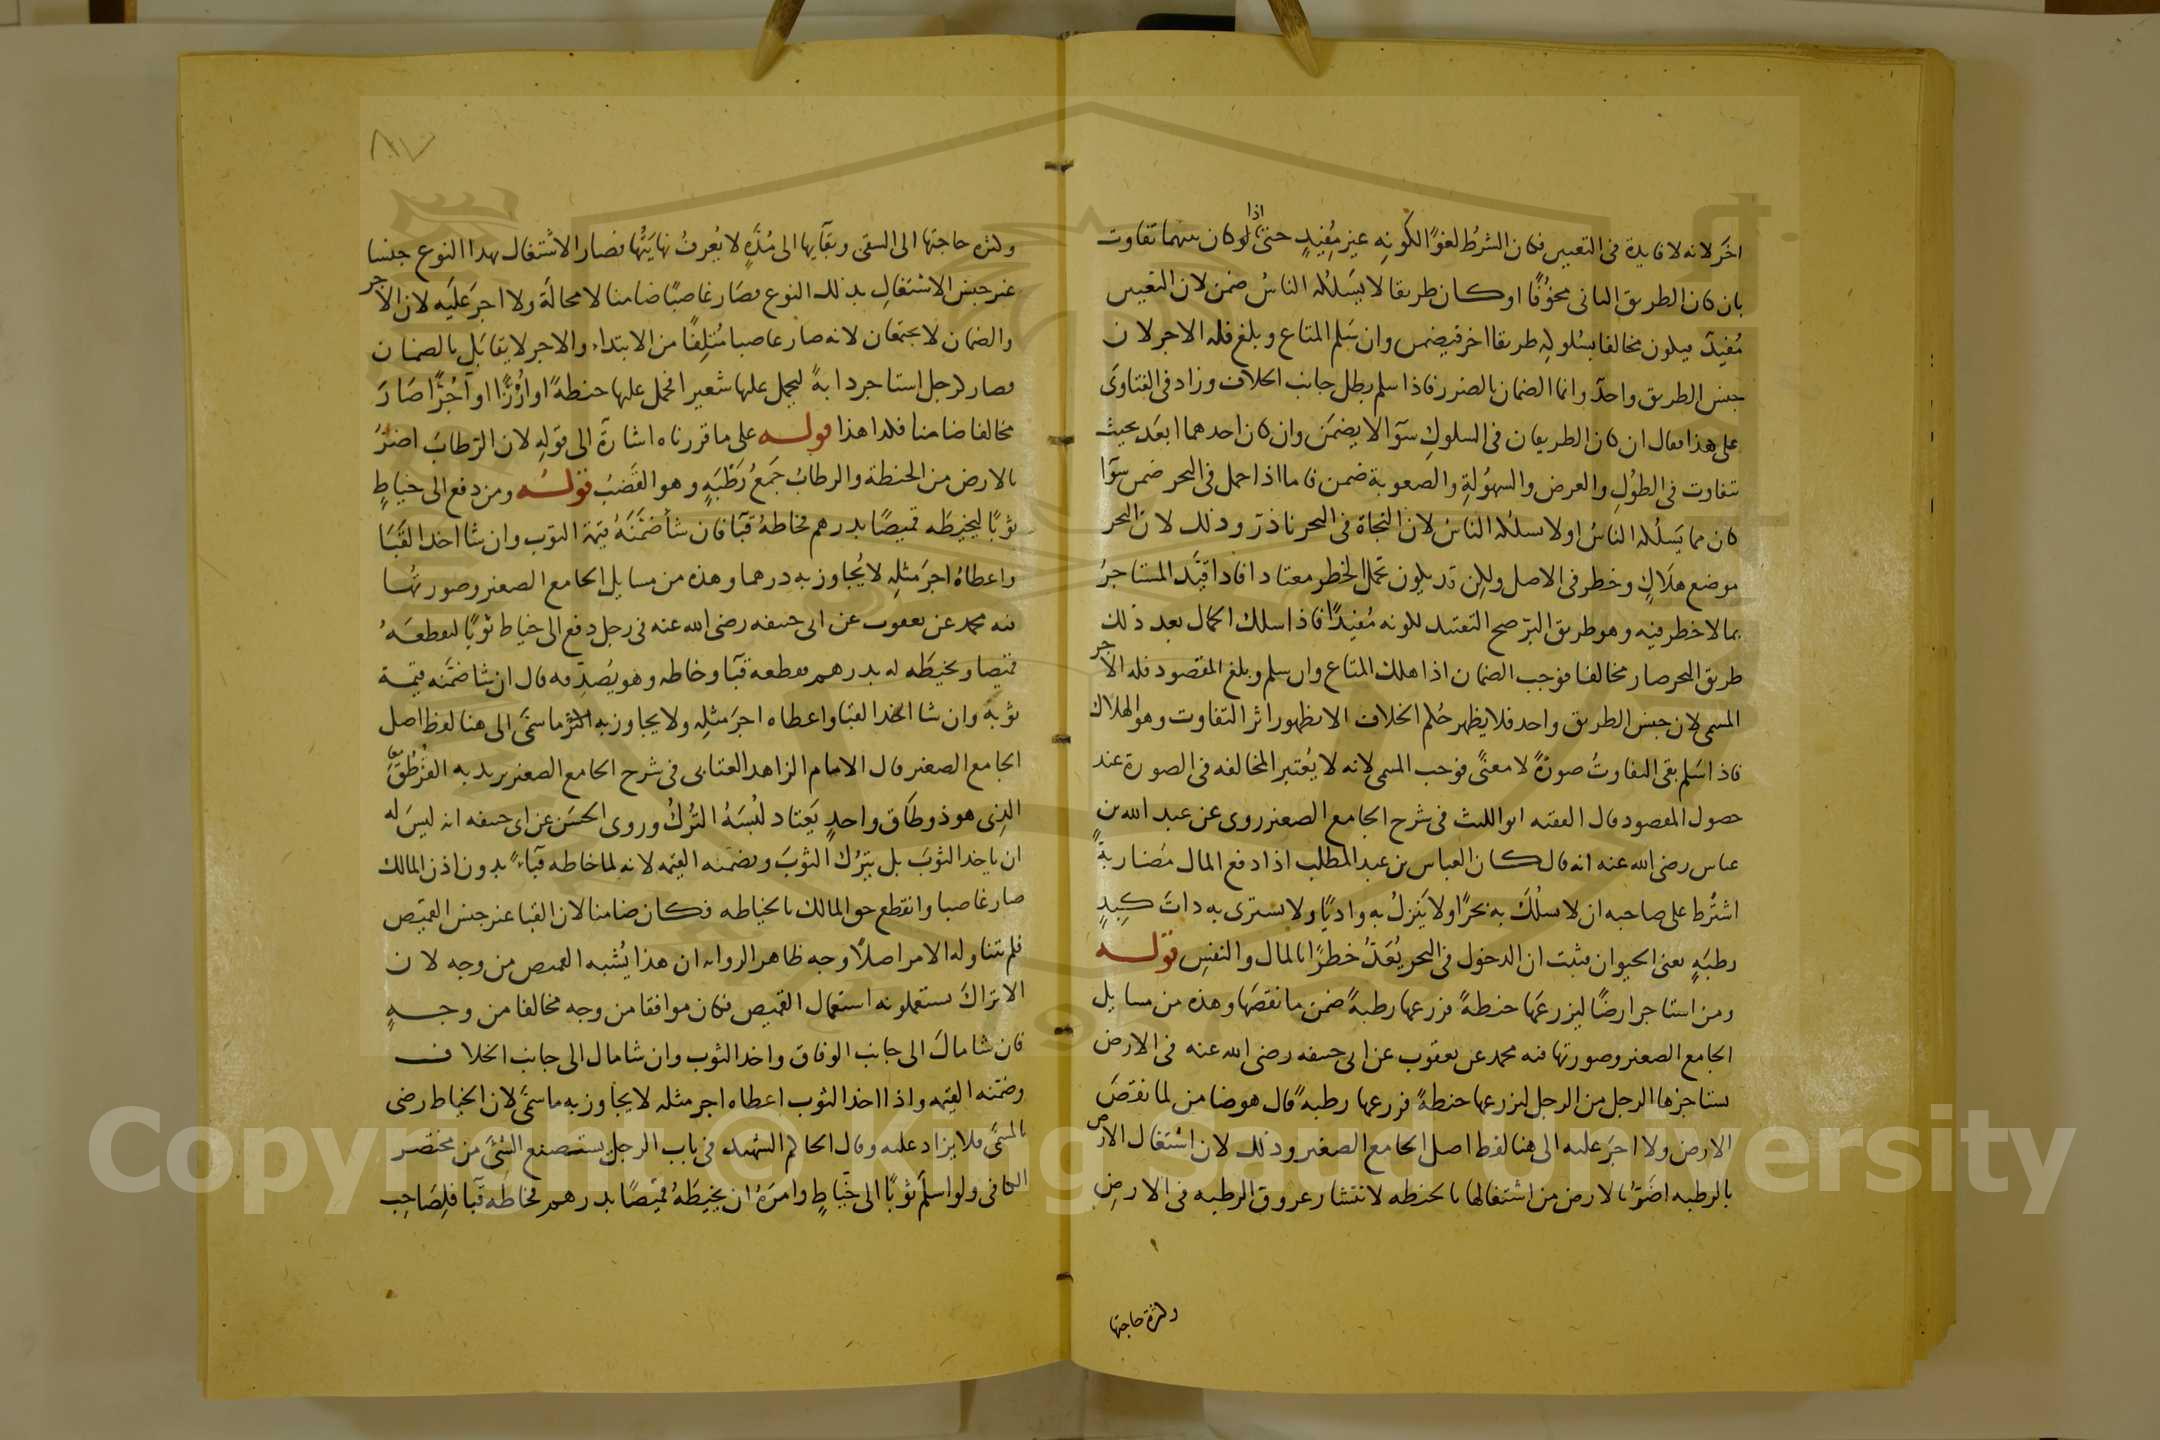 اخر لانه لا فايدة فى التعيين فكان الشرط لغوا لكونه غير مفيد حتى اذا لو كان بينهما تفاوت
بان كان الطريق الثانى مخوفا او كان طريقا لا يسلكه الناس ضمن لان التعيين
مفيد فيكون مخالفا بسلوكه طريقا اخر فيضمن وان سلم المتاع وبلغ فله الاجر لان
جنس الطريق واحد وانما الضمان بالضرر فاذا سلم بطل جانب الخلاف وزاد فى الفتاوى
على هذا فقال ان كان الطريقان فى السلوك سوآ لا يضمن وان كان احدهما ابعد بحيث
تتفاوت فى الطول والعرض والسهولة والصعوبة ضمن فاما اذا حمل فى البحر ضمن سوآ
كان مما يسلكه الناس او لا يسلكه الناس لان النجاة فى البحر نادر وذلك لان البحر
موضع هلاك وخطر فى الاصل ولكن قد يكون تحمل الخطر معتادا فاذا قيد المستاجر
بما لا خطر فيه وهو طريق البر صح التقييد لكونه مفيدا فاذا سلك الحمال بعد ذلك
طريق البحر صار مخالفا فوجب الضمان اذا هلك المتاع وان سلم وبلغ المقصود فله الاجر
المسمى لان جنس الطريق واحد فلا يظهر حكم الخلاف الا بظهور اثر التفاوت وهو الهلاك
فاذا سلم بقى التفاوت صورة لا معنى فوجب المسمى لانه لا يعتبر المخالفه فى الصورة عند
حصول المقصود قال الفقيه ابو الليث فى شرح الجامع الصغير روى عن عبد الله بن
عباس رضى الله عنه انه قال كان العباس بن عبد المطلب اذا دفع المال مضاربة
اشترط على صاحبه ان لا يسلك به بحرا ولا ينزل به واديا ولا يشترى به ذات كبد
رطبة يعنى الحيوان فثبت ان الدخول فى البحر يعد خطرا بالمال والنفس قوله
ومن استاجر ارضا ليزرعها حنطة فزرعها رطبة ضمن ما نقصها وهذه من مسايل
الجامع الصغير وصورتها فيه محمد عن يعقوب عن ابى حنيفه رضى الله عنه فى الارض
يستاجرها الرجل من الرجل ليزرعها حنطة فزرعها رطبة قال هو ضامن لما نقص
الارض ولا اجر عليه الى هنا لفظ اصل الجامع الصغير وذلك لان اشتغال الارض
بالرطبه اضر بالارض من اشتغالها بالحنطه لانتشار عروق الرطبه فى الارض
وكثرة حاجتها
٨٧
وكثره حاجتها الى السقى وبقآيها الى مدة لا يعرف نهايتها فصار الاشتغال بهذا النوع جنسا
غير جنس الاشتغال بذلك النوع فصار غاصبا ضامنا لا محالة ولا اجر عليه لان الاجر
والضمان لا يجتمعان لانه صار غاصبا متلفا من الابتداء والاجر لا يقابل بالضمان
فصار كرجل استاجر دابة ليحمل عليها شعيرا فحمل عليها حنطة او ارزا او آجرا صار
مخالفا ضامنا فكذا هذا قوله على ما قررناه اشارة الى قوله لان الرطاب اضر
بالارض من الحنطة والرطاب جمع رطبة وهو القضب قوله ومن دفع الى خياط
ثوبا ليخيطه قميصا بدرهم فخاطه قبآ فان شآ ضمنه قيمة الثوب وان شآ اخذ القبآ
واعطاه اجر مثله لا يجاوز به درهما وهذه من مسايل الجامع الصغير وصورتها
فيه محمد عن يعقوب عن ابى حنيفه رضى الله عنه فى رجل دفع الى خياط ثوبا ليقطعه
قميصا ويخيطه له بدرهم فقطعه قبآ وخاطه وهو يصدقه قال ان شا ضمنه قيمة
ثوبه وان شا اخذ القبا واعطاه اجر مثله ولا يجاوز به اكثر ما سمى الى هنا لفظ اصل
الجامع الصغير قال الامام الزاهد العتابى فى شرح الجامع الصغير يريد به القرطق
الذى هو ذو طاق واحد يعتاد لبسه الترك وروى الحسن عن ابى حنيفه انه ليس له
ان ياخذ الثوب بل يترك الثوب ويضمنه القيمه لانه لما خاطه قبآء بدون اذن المالك
صار غاصبا وانقطع حق المالك بالخياطه فكان ضامنا لان القبا غير جنس القميص
فلم يتناوله الامر اصلا وجه ظاهر الروايه ان هذا يشبه القميص من وجه لان
الاتراك يستعملونه استعمال القميص فكان موافقا من وجه مخالفا من وجه
فان شا مال الى جانب الوفاق واخذ الثوب وان شا مال الى جانب الخلاف
وضمنه القيمه واذا اخذ الثوب اعطاه اجر مثله لا يجاوز به ما سمى لان الخياط رضى
بالمسمى فلا يزاد عليه وقال الحاكم الشهيد فى باب الرجل يستصنع الشئ من مختصر
الكافى ولو اسلم ثوبا الى خياط وامره ان يخيطه قميصا بدرهم فخاطه قبآ فلصاحب
Copyright © King Saud University